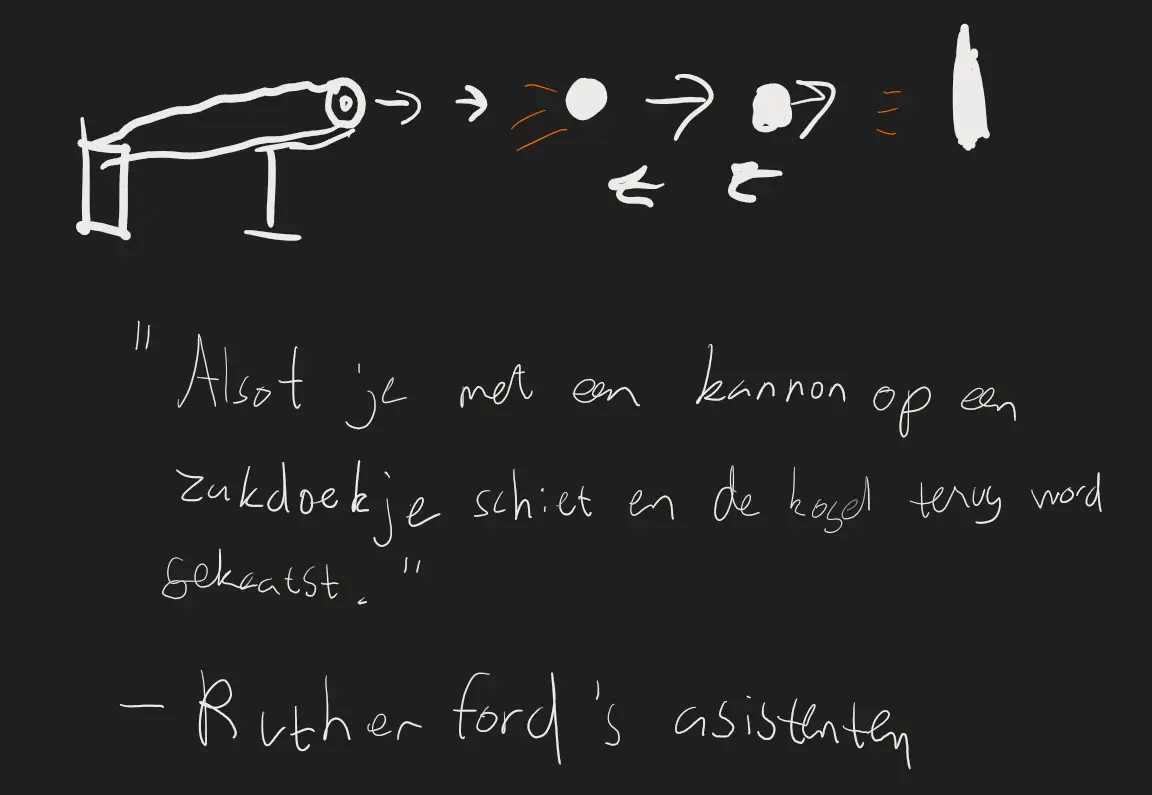 "Alsof je met een kannon op een
zakdoekje schiet en de kogel terug word
gekaatst."
- Rutherford's asistenten